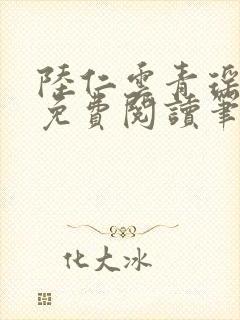 陸仁雲青瑤
免費閱讀筆
化大冰